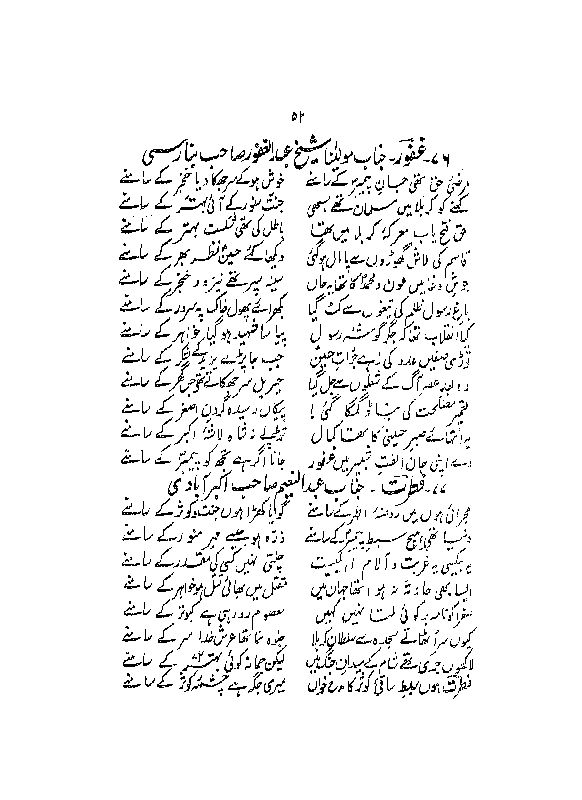 ۵۲
۷۶۔ غفور۔ جناب مولانا شیخ عبدالغفور صاحب بنارسی
کے سامنے خوش ہو کے سر جھکا دیا خنجر کے سامنے
کہنے کو کربلا میں مسلمان تھے سبھی جنت کے سامنے
حق فتح یاب معرکۂ کربلا میں تھا باطل کی تھی شکست بہتر کے سامنے
قاسم کی لاش گھوڑوں سے پامال ہو گئی دیکھا کئے حسین نظر بھر کے سامنے
جوش وغا میں عون و محمد کا تھا یہ حال سینہ سپر تھے نیزہ و خنجر کے سامنے
باغ رسول ظلم کی تیغوں سے کٹ گیا بکھرائے پھول خاک پہ سرور کے سامنے
کیا انقلاب تھا کہ جگر گوشۂ رسول پیاسا شہید ہو گیا خواہر کے سامنے
توڑی صفیں عدو کی زہے جرأت حسین جب جا پڑے بڑھ کے لشکر کے سامنے
وہ بعد عصر آگ کے شعلوں سے جل گیا جبریل سر جھکاتے تھے جس گھر کے سامنے
کے سامنے
یہ انتہائے صبر حسینی کا تھا کمال تڑپے نہ شاہ لاشۂ اکبر کے سامنے
دے اپنی جان الفت شبیر میں غفور جانا اگر ہے تجھ کو پیمبر کے سامنے
۷۷۔ فطرت۔ جناب عبدالنعیم صاحب اکبرآبادی
مجرائی ہوں میں روضۂ اطہر کے سامنے گویا کھڑا ہوں جنت و کوثر کے سامنے
دنیا تھی ہیچ سبط پیمبر کے سامنے ذرہ ہو جیسے مہر منور کے سامنے
یہ بیکسی یہ غربت و آلام اہلبیت چلتی نہیں کسی کی مقدر کے سامنے
ایسا بھی حادثہ نہ ہو اکثر جہان میں مقتل میں بھائی قتل ہو خواہر کے سامنے
صغرا کو نامہ بر کوئی ملتا نہیں کہیں معصوم رو رہی ہے کبوتر کے سامنے
کیوں سر اٹھاتے سجدہ سے سلطان کربلا جلوہ نما تھا عرش خدا سر کے سامنے
لاکھوں جری تھے شام کے میدان جنگ میں لیکن جما نہ کوئی بہتر کے سامنے
فطرت ہوں سبط ساقی کوثر کا مدح خواں میری جگہ ہے چشمۂ کوثر کے سامنے